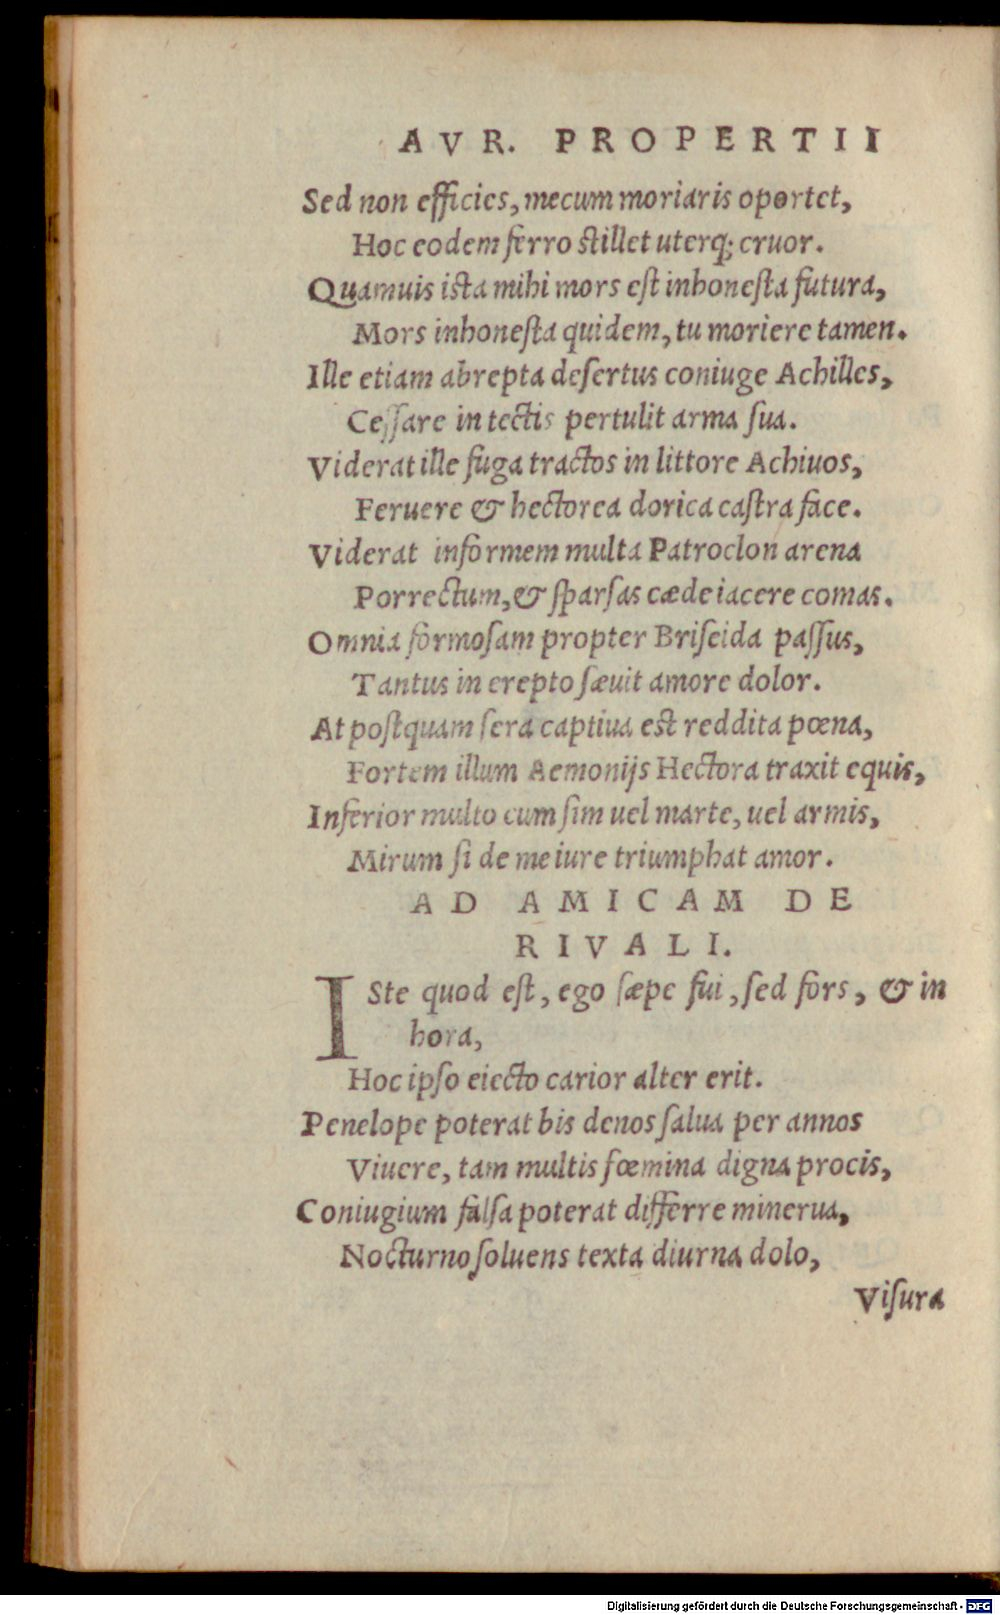 AVR. PROPERTII
Sed non efficies, mecum moriaris oportet,
Hoc eodem ferro stillet uterq; cruor.
Quamuis ista mihi mors eſt inhoneſta futura,
Mors inhoneſta quidem, tu moriere tamen.
Ille etiam abrepta deſertus coniuge Achilles,
Ceſſare in tectis pertulit arma ſua.
Viderat ille fuga tractos in littore Achiuos,
Feruere & hectorea dorica caſtra face.
Viderat informem multa Patroclon arena
Porrectum, & ſparſas cæde iacere comas.
Omnia formoſam propter Briſeida paſſus,
Tantus in erepto ſæuit amore dolor.
At poſtquam ſera captiua est reddita pœna,
Fortem illum Aemonijs Hectora traxit equis,
Inferior multo cum ſim uel marte, uel armis,
Mirum ſi de me iure triumphat amor.
AD AMICAM DE
RIVALI.
ISte quod eſt, ego ſæpe fui, ſed fors, & in
hora,
Hoc ipſo eiecto carior alter erit.
Penelope poterat bis denos ſalua per annos
Viuere, tam multis fœmina digna procis,
Coniugium falſa poterat differre minerua,
Nocturno ſoluens texta diurna dolo,
Viſura
Digitalisierung gefördert durch die Deutsche Forschungsgemeinschaft - DFG